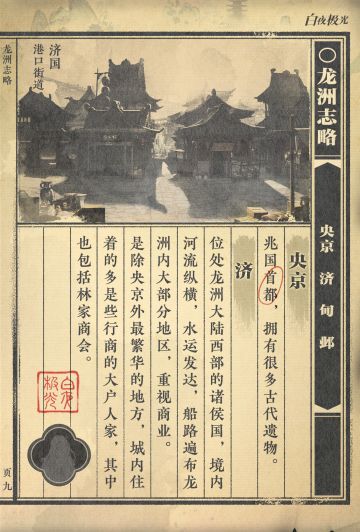 白夜极光
龙洲志略
央京 济 甸 邺
济国
港口街道
龙洲志略
央京
兆国首都，拥有很多古代遗物。
济
位处龙洲大陆西部的诸侯国，境内
河流纵横，水运发达，船路遍布龙
洲内大部分地区，重视商业。
是除央京外最繁华的地方，城内住
着的多是些行商的大户人家，其中
也包括林家商会。
白夜
极光
页九